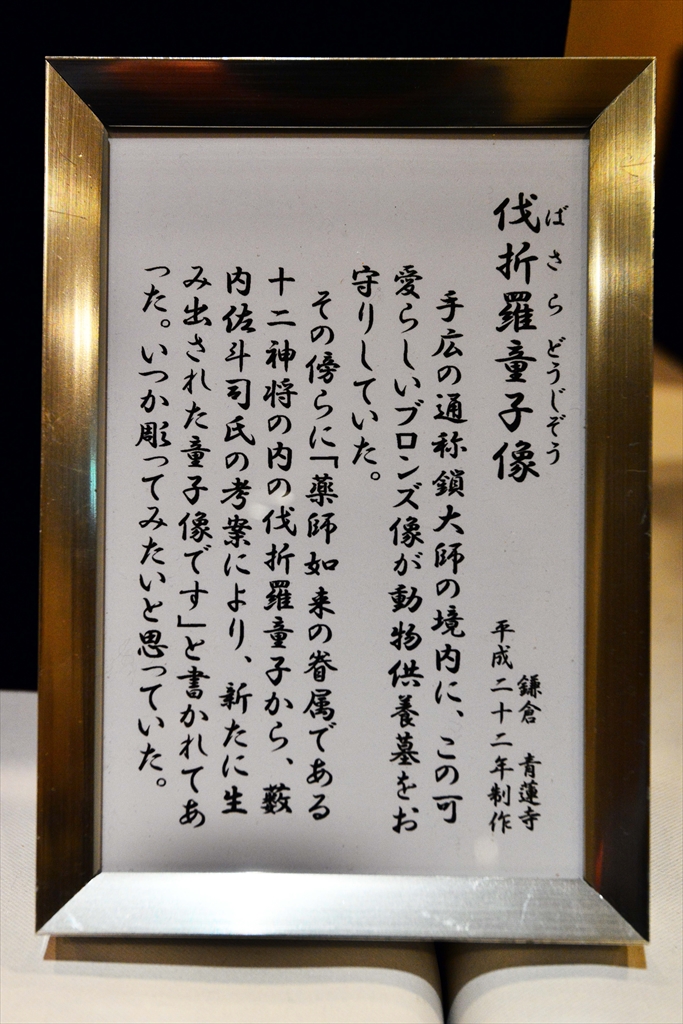 伐折羅童子像
ばさらどうじぞう
鎌倉 青蓮寺
平成二十二年制作
手広の通称鎖大師の境内に、この可
愛らしいブロンズ像が動物供養墓をお
守りしていた。
その傍らに「薬師如来の眷属である
十二神将の内の伐折羅童子から、薮
内佐斗司氏の考案により、新たに生
み出された童子像です」と書かれてあ
った。いつか彫ってみたいと思っていた。